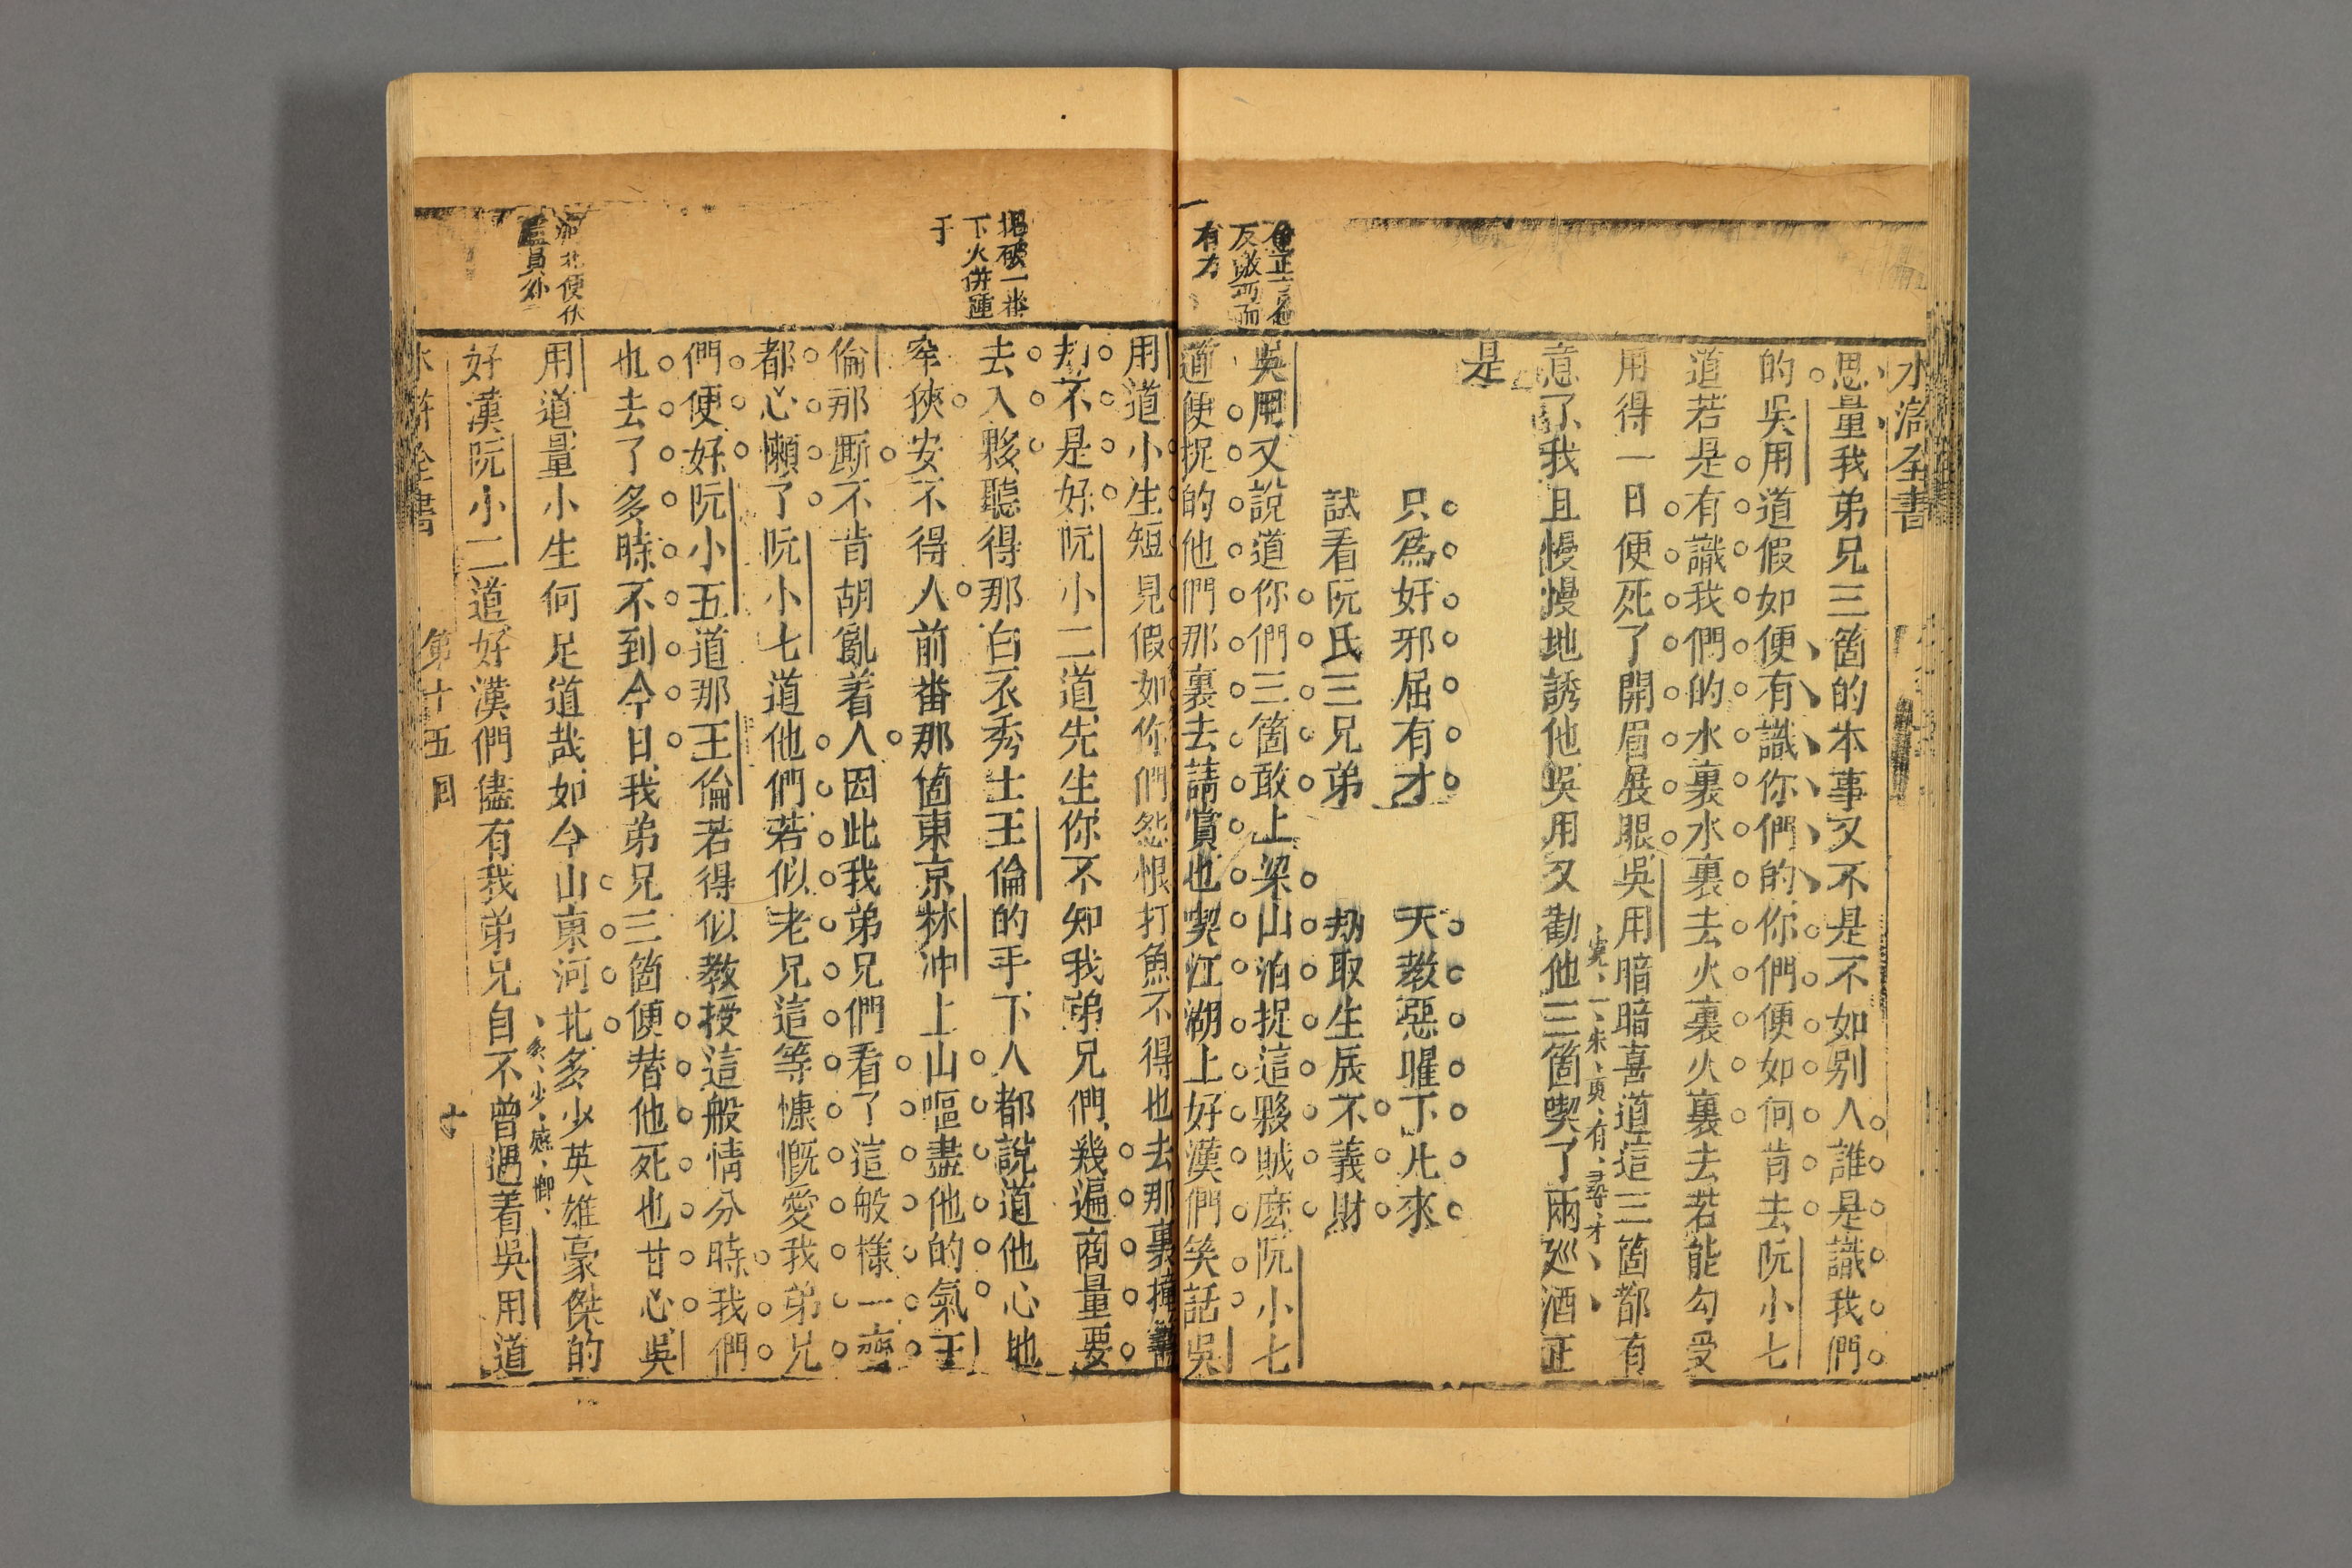 水滸全書
思量我弟兄三箇的本事又不是不如别人誰是識我們
的吳用道假如便有識你們的你們便如何肯去阮小七
道若是有識我們的水裏水裏去火裏火裏去若能勾受
用得一日便死了開眉展眼吳用暗暗喜道這三箇都有
意了我且慢慢地誘他吳用又勸他三箇喫了兩廵酒正
是
只爲奸邪屈有才
天敎惡曜下凡來
試看阮氏三兄弟
刼取生辰不義財
吳用又說道你們三箇敢上梁山泊捉這夥賊麽阮小七
道便捉的他們那裏去請賞也喫江湖上好漢們笑話吳
反激而
有力
用道小生短見假如你們怨恨打魚不得也去那裏撞籌
却不是好阮小二道先生你不知我弟兄們幾遍商量要
去入夥聽得那白衣秀士王倫的手下人都說道他心地
窄狹安不得人前番那箇東京林冲上山嘔盡他的氣王
倫那厮不肯胡亂着人因此我弟兄們看了這般樣一齊
都心懶了阮小七道他們若似老兄這等慷慨愛我弟兄
們便好阮小五道那王倫若得似敎授這般情分時我們
也去了多時不到今日我弟兄三箇便替他死也甘心吳
用道量小生何足道哉如今山東河北多少英雄豪傑的
好漢阮小二道好漢們儘有我弟兄自不曾遇着吳用道
破一番
下火併種
于
河北便伏
盧員外
水滸全書
第十五回